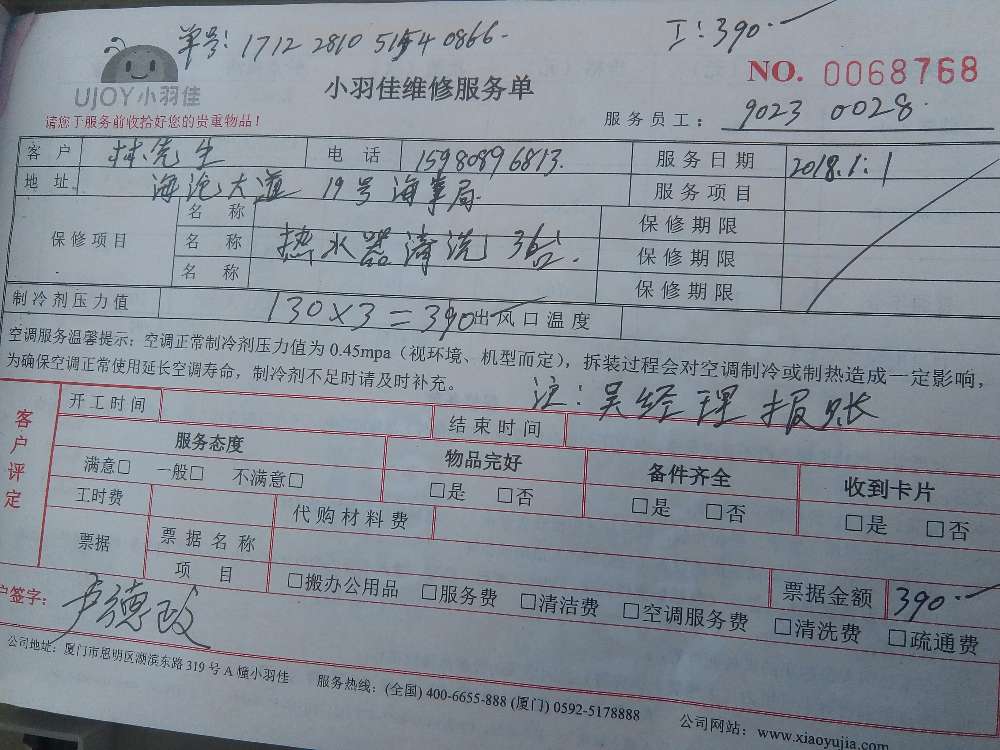 单号: 1712 2810 5154 0866.
工: 390.
UJOY小羽佳
小羽佳维修服务单
NO. 0068768
请您于服务前收拾好您的贵重物品!
服务员工: 9023 0028.
客 户 林先生 电 话 15980896813. 服务日期 2018.1.1
地 址 海沧大道 19号海事局 服务项目
保修项目 名 称 保修期限
名 称 热水器清洗 3台. 保修期限
名 称 保修期限
制冷剂压力值 130×3=390 出风口温度
空调服务温馨提示: 空调正常制冷剂压力值为 0.45mpa (视环境、机型而定), 拆装过程会对空调制冷或制热造成一定影响,
为确保空调正常使用延长空调寿命, 制冷剂不足时请及时补充。
注: 吴经理报账
客户评定
开工时间 结束时间
服务态度 物品完好 备件齐全 收到卡片
满意□ 一般□ 不满意□ □是 □否 □是 □否 □是 □否
工时费 代购材料费
票据 票据名称
项 目 □搬办公用品 □服务费 □清洁费 □空调服务费 □清洗费 □疏通费
票据金额 390.
户签字: 卢德政
公司地址: 厦门市思明区湖滨东路 319 号 A 幢小羽佳 服务热线: (全国) 400-6655-888 (厦门) 0592-5178888 公司网站: www.xiaoyujia.com